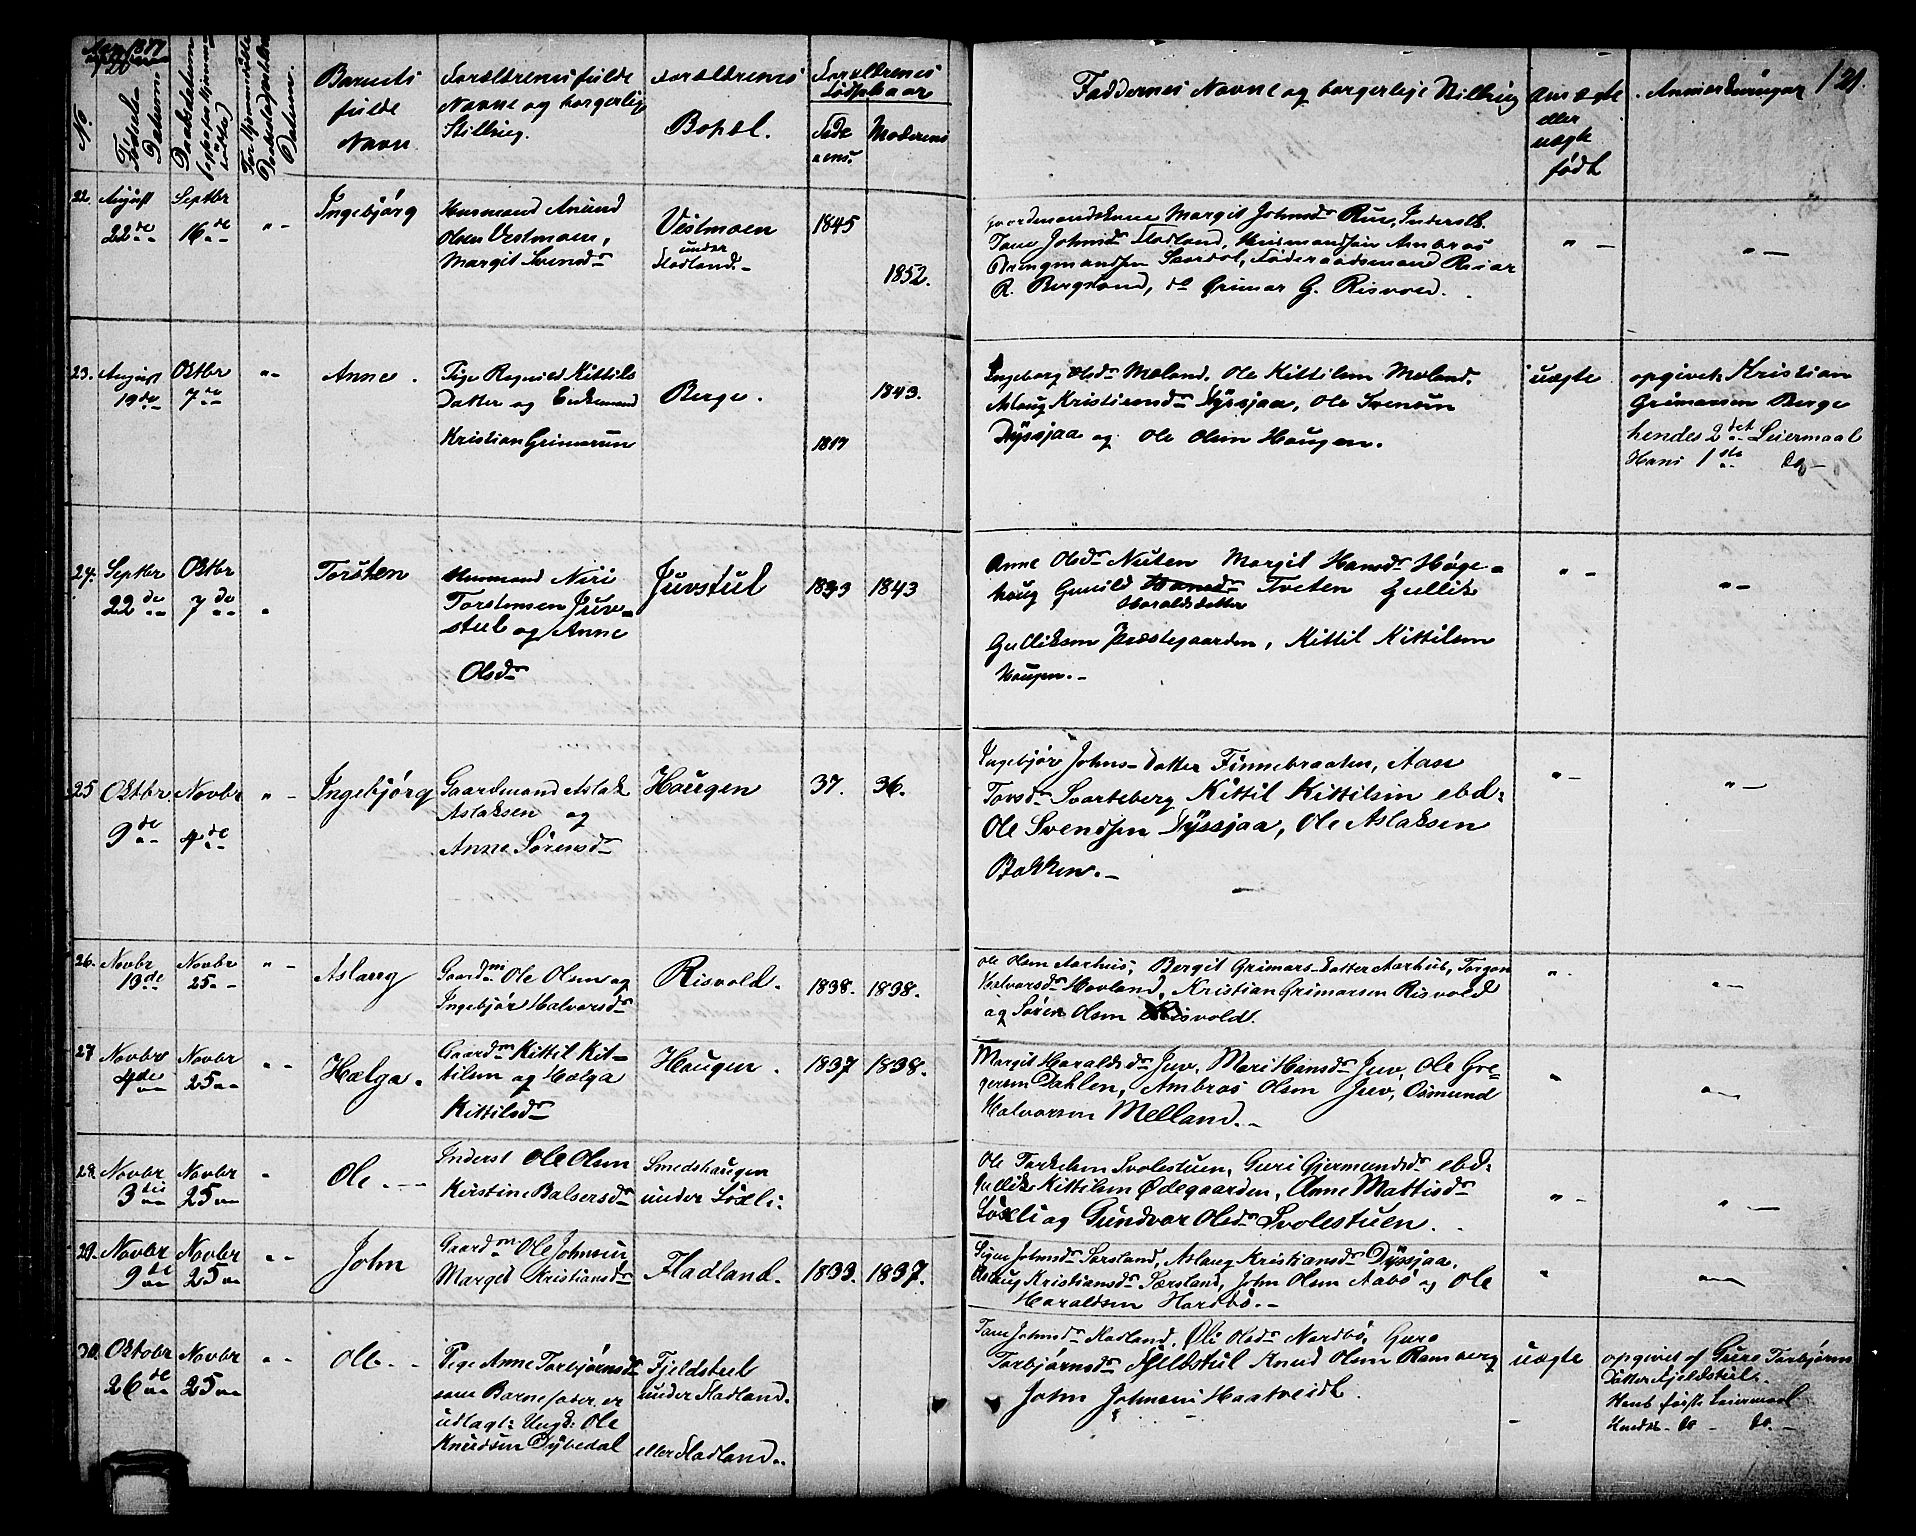 Aar 1877
No
Fødsels-Datum
Daabsdatum
Datum.
Barnets
fulde
Navn
Forældrenes fulde
Navne og borgerlige
Stilling.
Forældrenes
Bopæl.
Forældrenes
Fødselsaar
Fade
rens
Moderens
Faddernes Navne og borgerlige Stilling
Om ægte
eller
uægte
født
Anmærkninger
121.
22. August 22de Septbr 16de " - Ingebjørg
Husmand Anund
Olsen Vestmoen,
Margit Svensdr
Vestmoen
under
Fladland.-
1845
1852.
Gaardmandskone Margit Johnsdr Rue, Inderst.
Tone Johnsdr Fladland, Husmandsøn Ambros
Saardal, Føderaadsmand Reiar
R. Bergsland, do Grimar G. Risvold.
" -
" -
23. August 19de Oktbr 7de " - Anne.
Pige Ragnild Kittils
Datter og Enkemand
Kristian Grimarsen
Berge.
1843.
1817
Ingeborg Olsdr Mæland, Ole Kittilsen Mæland.
Aslaug Kristiansdr Dyssjaa, Ole Svensen
Dyssjaa og Ole Olsen Haugen.
uægte
opgivet: Kristian
Grimarsen Berge
hendes 2det Leiermaal
Hans 1ste Do -
24. Septbr 22de Oktbr 7de " Torsten
Husmand Neri
Torstensen Juv-
stul og Anne
Olsdr
Juvstul
1833 1843
Anne Olsdr Nuten Margit Hansdr Høge-
haug Gunild Hansdr Tveten Gullik
Haraldsdatter
Gulliksen Præstegaarden, Kittil Kittilsen
Haugen.-
" -
" -
25 Oktbr 9de Novbr 4de " - Ingebjørg
Gaardmand Aslak
Aslaksen og
Anne Sørensdr
Haugen
37. 36.
Ingebjør Johns-Datter Finnebraaten, Aase
Torsdr Svarteberg Kittil Kittilsen ebd:
Ole Svendsen Dyssjaa, Ole Aslaksen
Bakken.-
" -
" -
26. Novbr 19de Novbr 25 " - Aslaug
Gaardm Ole Olsen og
Ingebjør Halvorsdr
Risvold.
1838. 1838.
Ole Olsen Aarhus, Bergit Grimars-Datter Aarhus, Torgon
Halvorsdr Hovland, Kristian Grimarsen Risvold
og Søren Olsen Risvold.
" -
" -
27 Novbr 4de Novbr 25 " - Hælga.
Gaardm Kittil Kit-
tilsen og Hælga
Kittilsdr
Haugen.
1837 1838.
Margit Haraldsdr Juv, Mari Hansdr Juv, Ole Gre-
gersen Dahlen, Ambros Olsen Juv, Osmund
Halvorsen Melland.-
"
" -
28. Novbr 3die Novbr 25 " Ole.--
Inderst Ole Olsen
Kirstine Balsersdr
Smedshaugen
under Lødli:
Ole Torkelsen Svolestuen, Guri Gjermundsdr ebd:
Gullik Kittilsen Ødegaarden, Anne Mattisdr
Lødli og Gundvor Olsdr Svolestuen.
" -
" -
29. Novbr 9de Novbr 25 " - John
Gaardm Ole Johnsen
Marget Kristiansdr
Fladland.
1833. 1837.
Signe Johnsdr Særsland, Aslaug Kristiansdr Dyssjaa,
Aslaug Kristiansdr Særsland, John Olsen Aabø og Ole
Haraldsen Hardbø.-
"
" -
30. Oktobr 26de Novbr 25 " - Ole.-
Pige Anne Torbjørnsdr
som Barnefader er
udlagt: Ungk: Ole
Knudsen Dybedal
Fjeldstul
under Fladland.
eller Fladland..
Tone Johnsdr Fladland, Øli Olsdr Nordbø, Guro
Torbjørnsdr Fjeldstul Knud Olsen Ramberg
John Johnsen Haatveidt.
uægte
opgivet af Guro Torbjørns
Datter Fjeldstul.
Hans første Leiermaal
Hendes Do - Do.-